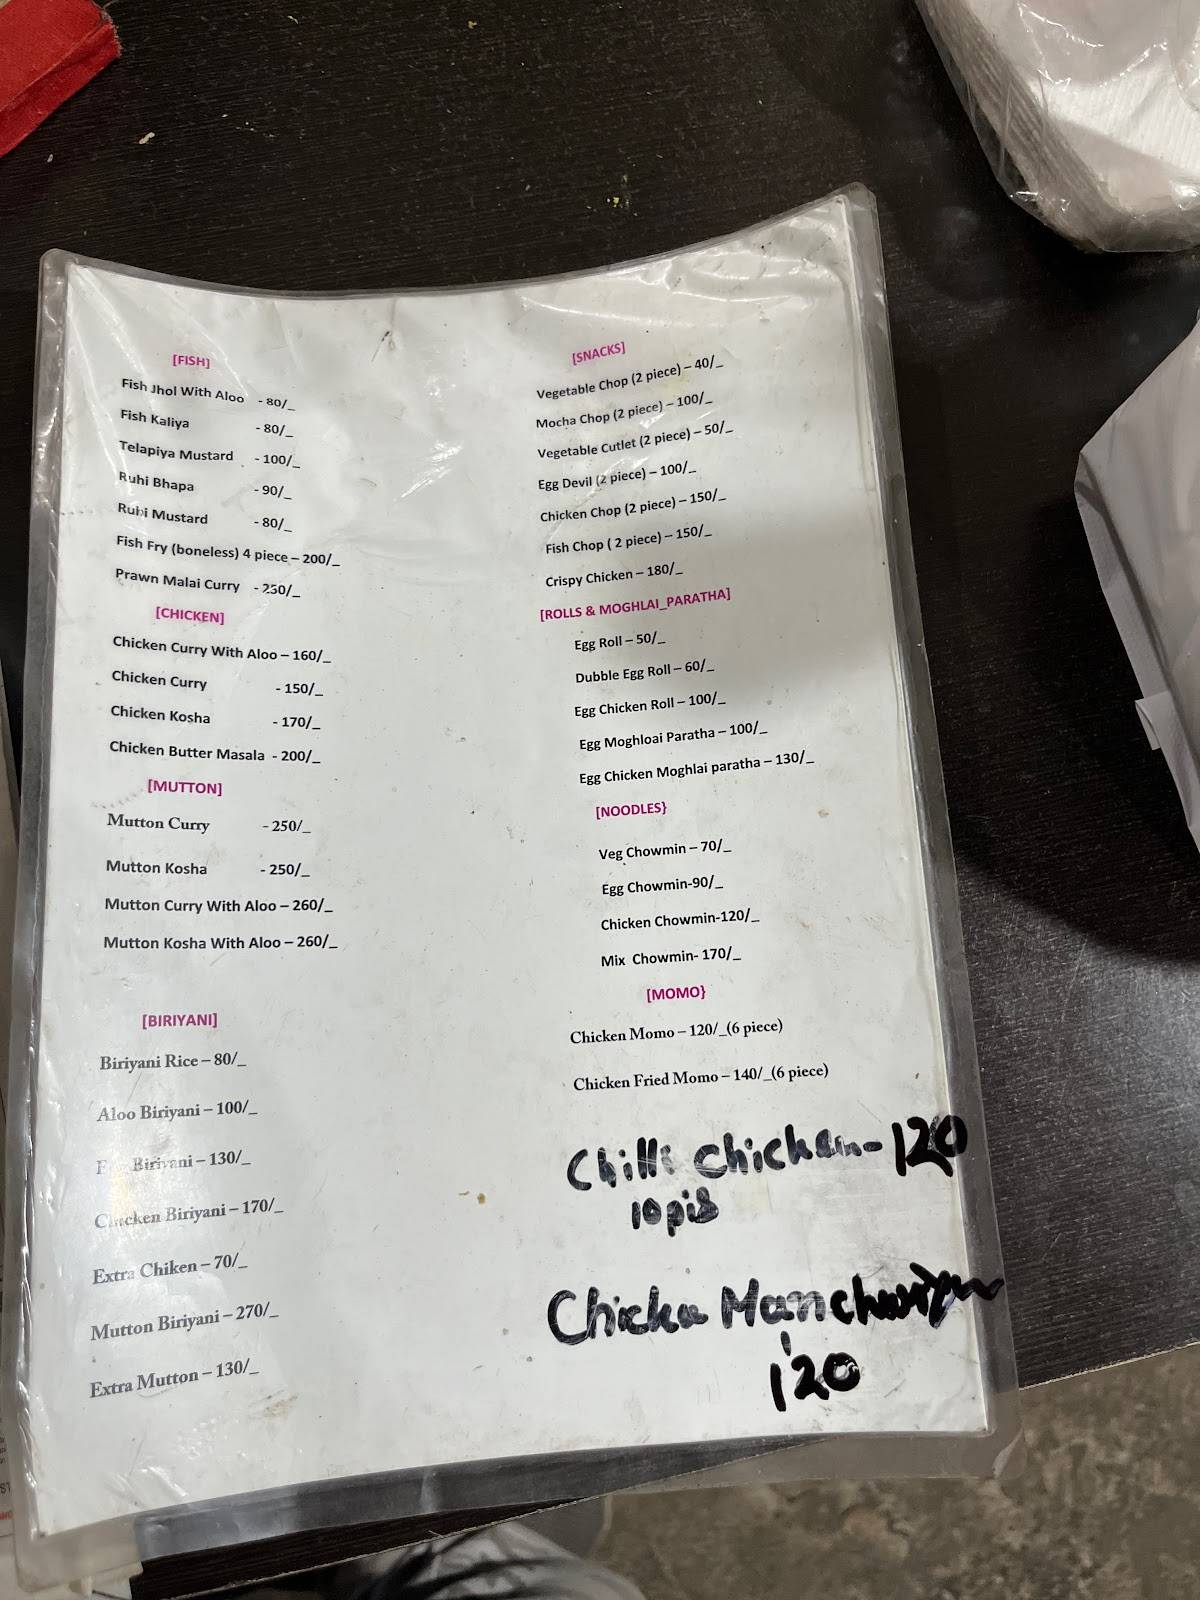 [FISH]
Fish Jhol With Aloo - 80/_
Fish Kaliya - 80/_
Telapiya Mustard - 100/_
Ruhi Bhapa - 90/_
Ruhi Mustard - 80/_
Fish Fry (boneless) 4 piece – 200/_
Prawn Malai Curry - 250/_
[CHICKEN]
Chicken Curry With Aloo – 160/_
Chicken Curry - 150/_
Chicken Kosha - 170/_
Chicken Butter Masala - 200/_
[MUTTON]
Mutton Curry - 250/_
Mutton Kosha - 250/_
Mutton Curry With Aloo – 260/_
Mutton Kosha With Aloo – 260/_
[BIRIYANI]
Biriyani Rice – 80/_
Aloo Biriyani – 100/_
Egg Biriyani – 130/_
Chicken Biriyani – 170/_
Extra Chiken – 70/_
Mutton Biriyani – 270/_
Extra Mutton – 130/_
[SNACKS]
Vegetable Chop (2 piece) – 40/_
Mocha Chop (2 piece) – 100/_
Vegetable Cutlet (2 piece) – 50/_
Egg Devil (2 piece) – 100/_
Chicken Chop (2 piece) – 150/_
Fish Chop ( 2 piece) – 150/_
Crispy Chicken – 180/_
[ROLLS & MOGHLAI_PARATHA]
Egg Roll – 50/_
Dubble Egg Roll – 60/_
Egg Chicken Roll – 100/_
Egg Moghloai Paratha – 100/_
Egg Chicken Moghlai paratha – 130/_
[NOODLES}
Veg Chowmin – 70/_
Egg Chowmin-90/_
Chicken Chowmin-120/_
Mix Chowmin- 170/_
[MOMO}
Chicken Momo – 120/_(6 piece)
Chicken Fried Momo – 140/_(6 piece)
Chilli Chicken - 120
10 pis
Manchurian
120